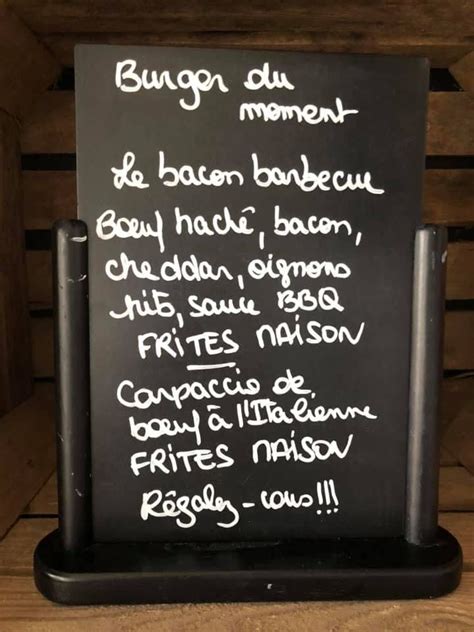 Burger du
moment
Le bacon barbecue
Bœuf haché, bacon,
cheddar, oignons
frits, sauce BBQ
FRITES MAISON
Carpaccio de
bœuf à l'Italienne
FRITES MAISON
Régalez-vous!!!